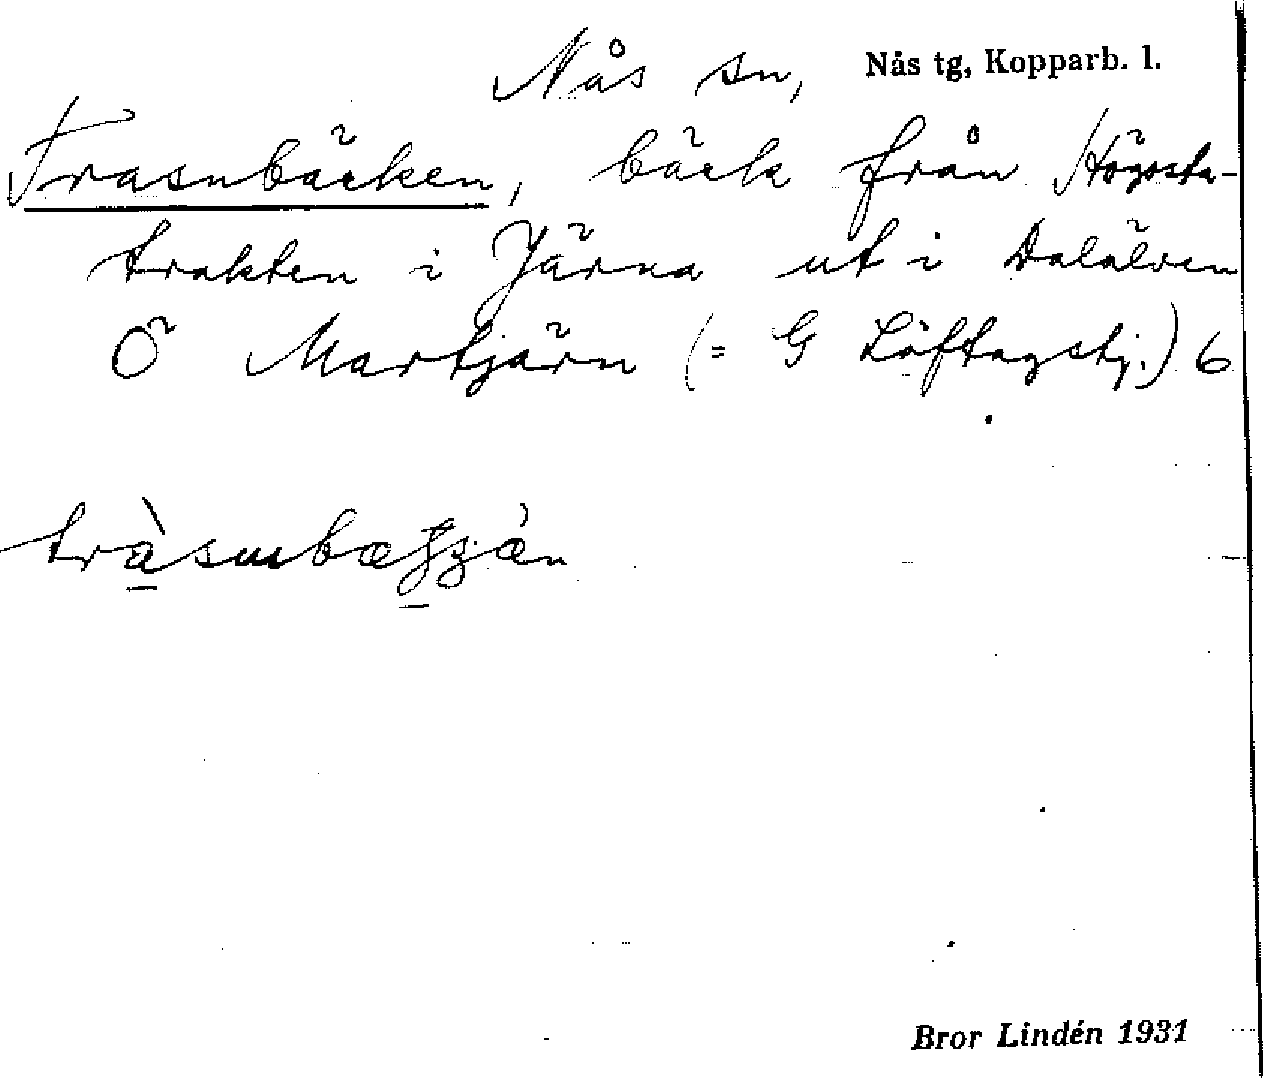 Nås sn, Nås tg, Kopparb. l.
Trasnbäcken, bäck från Högosta-
trakten i Järna ut i Dalälven
Ö Martjärn (= G Löftagstj.) 6
Bror Lindén 1931